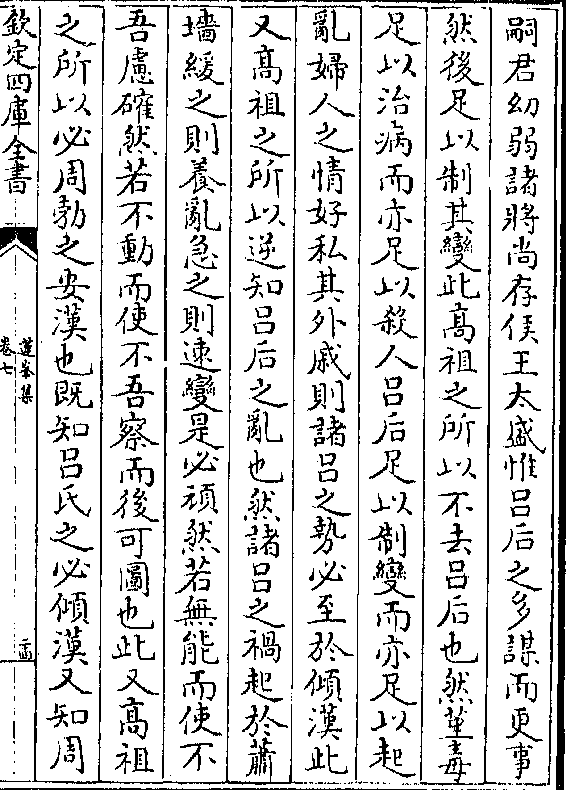 嗣君幼弱諸將尚存侯王太盛惟吕后之多謀而更事
然後足以制其變此髙祖之所以不去吕后也然堇毒
足以治病而亦足以殺人吕后足以制變而亦足以起
亂婦人之情好私其外戚則諸吕之勢必至於傾漢此
又髙祖之所以逆知吕后之亂也然諸吕之禍起於蕭
墻緩之則養亂急之則速變是必頑然若無能而使不
吾慮確然若不動而使不吾察而後可圖也此又髙祖
之所以必周勃之安漢也既知吕氏之必傾漢又知周
欽定四庫全書
蓮峯集
卷七